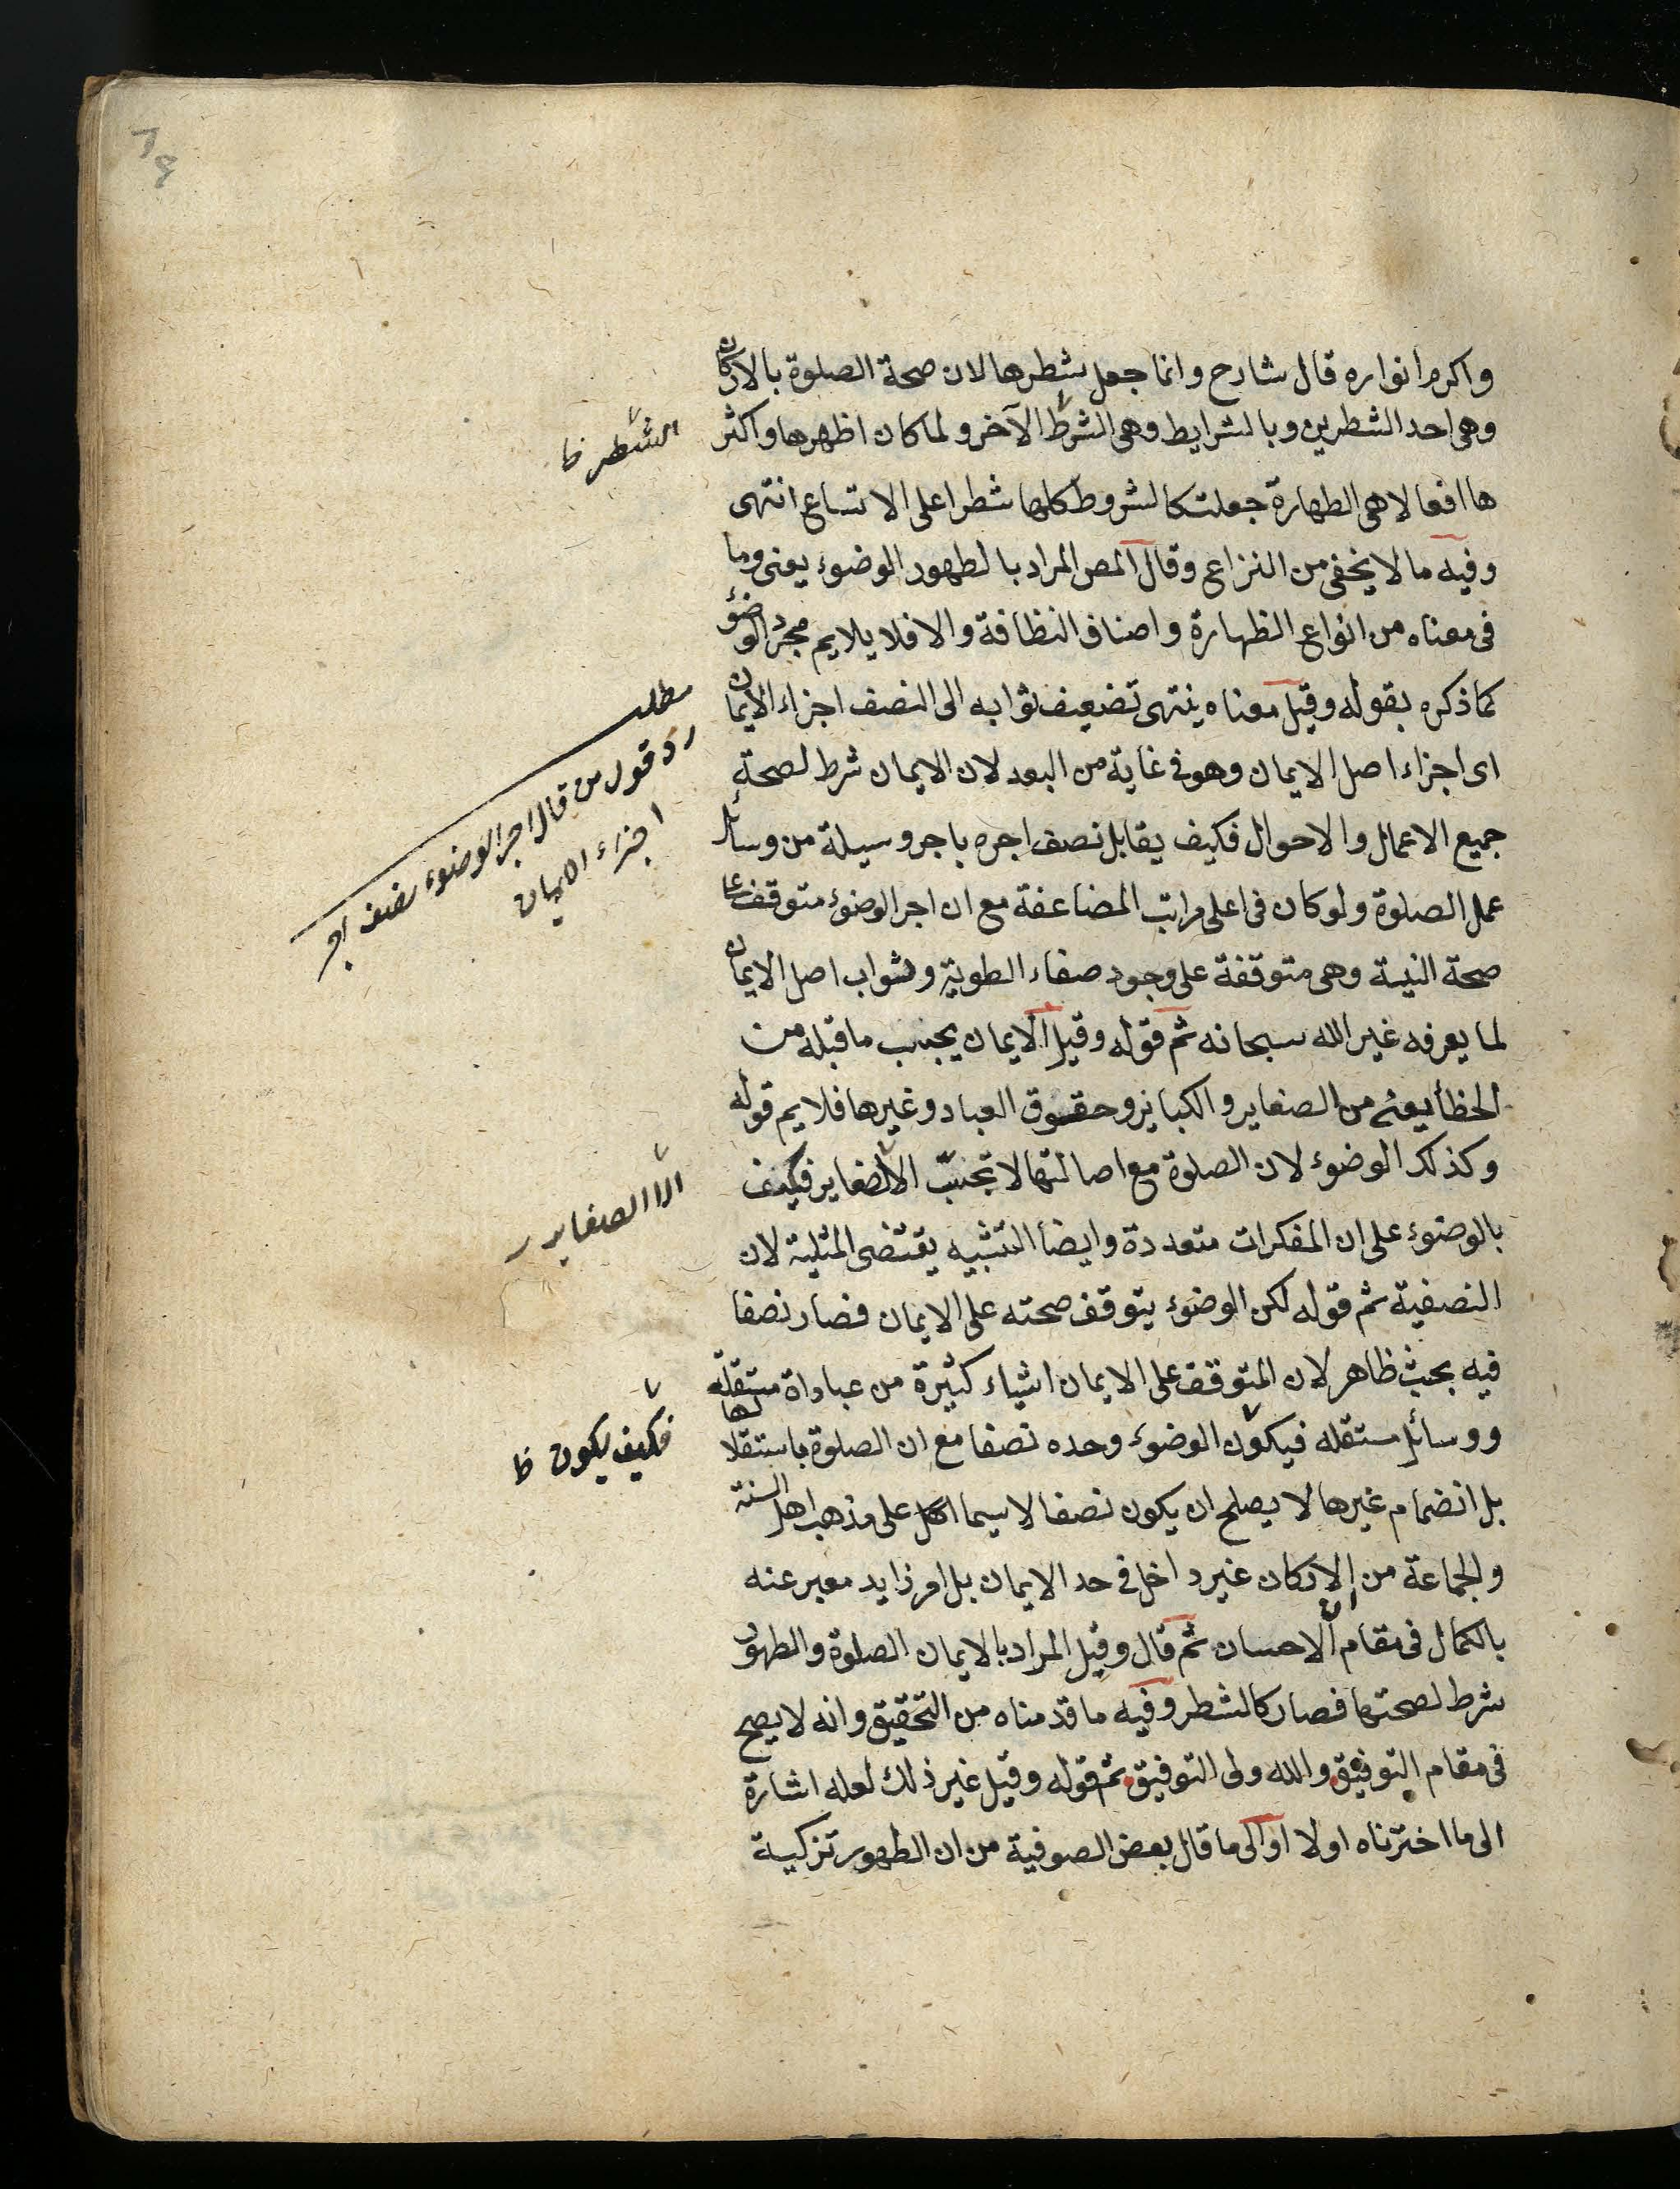 واكرم انواره قال شارح وانما جعل شطرها لان صحة الصلوة بالاركان
وهى احد الشطرين وبالشرايط وهى الشرط الآخر ولما كان اظهرها واكثر
ها افعالا هى الطهارة جعلت كالشروط كلها شطرا على الاتساع انتهى
وفيه ما لا يخفى من النزاع وقال المص المراد بالطهور الوضوء يعنى وما
فى معناه من انواع الطهارة واصناف النظافة والا فلا يلايم مجرد الوضوء
كما ذكره بقوله وقيل معناه ينتهى تضعيف ثوابه الى النصف اجزاء الايمان
اى اجزاء اصل الايمان وهو فى غاية من البعد لان الايمان شرط لصحة
جميع الاعمال والاحوال فكيف يقابل نصف اجره باجر وسيلة من وسائل
عمل الصلوة ولو كان فى اعلى مراتب المضاعفة مع ان اجر الوضوء متوقف على
صحة النية وهى متوقفة على وجود صفاء الطوية وثواب اصل الايمان
لما يعرفه غير الله سبحانه ثم قوله وقيل الايمان يجبب ما قبله من
الخطأ يعنى من الصغاير والكبائر وحقوق العباد وغيرها فلا يم قوله
وكذلك الوضوء لان الصلوة مع اصالتها لا تجبّ الا لصغاير فكيف
بالوضوء على ان المفكرات متعددة وايضا التشبيه يقتضى المثلية لان
النصفية ثم قوله لكن الوضوء يتوقف صحته على الايمان فصار نصفا
فيه بحث ظاهر لان المتوقف على الايمان اشياء كثيرة من عباداة مستقلة
ووسائل مستقله فيكون الوضوء وحده نصفا مع ان الصلوة باستقلالها
بل انضمام غيرها لا يصلح ان يكون نصفا لا سيما الكل على مذهب اهل السنة
والجماعة من ان الاركان غير داخل فى حد الايمان بل امر زايد معبر عنه
بالكمال فى مقام الاحسان ثم قال وقيل المراد بالايمان الصلوة والطهور
شرط لصحتها فصار كالشطر وفيه ما قدمناه من التحقيق وانه لا يصح
فى مقام التوفيق والله ولى التوفيق ثم قوله وقيل غير ذلك لعله اشارة
الى ما اخترناه اولا او الى ما قال بعض الصوفية من ان الطهور تزكية
الشطر ظ
مطلب
رد قول من قال اجر الوضوء نصف اجر
اجزاء الايمان
الا الصغاير
فكيف يكون ظ